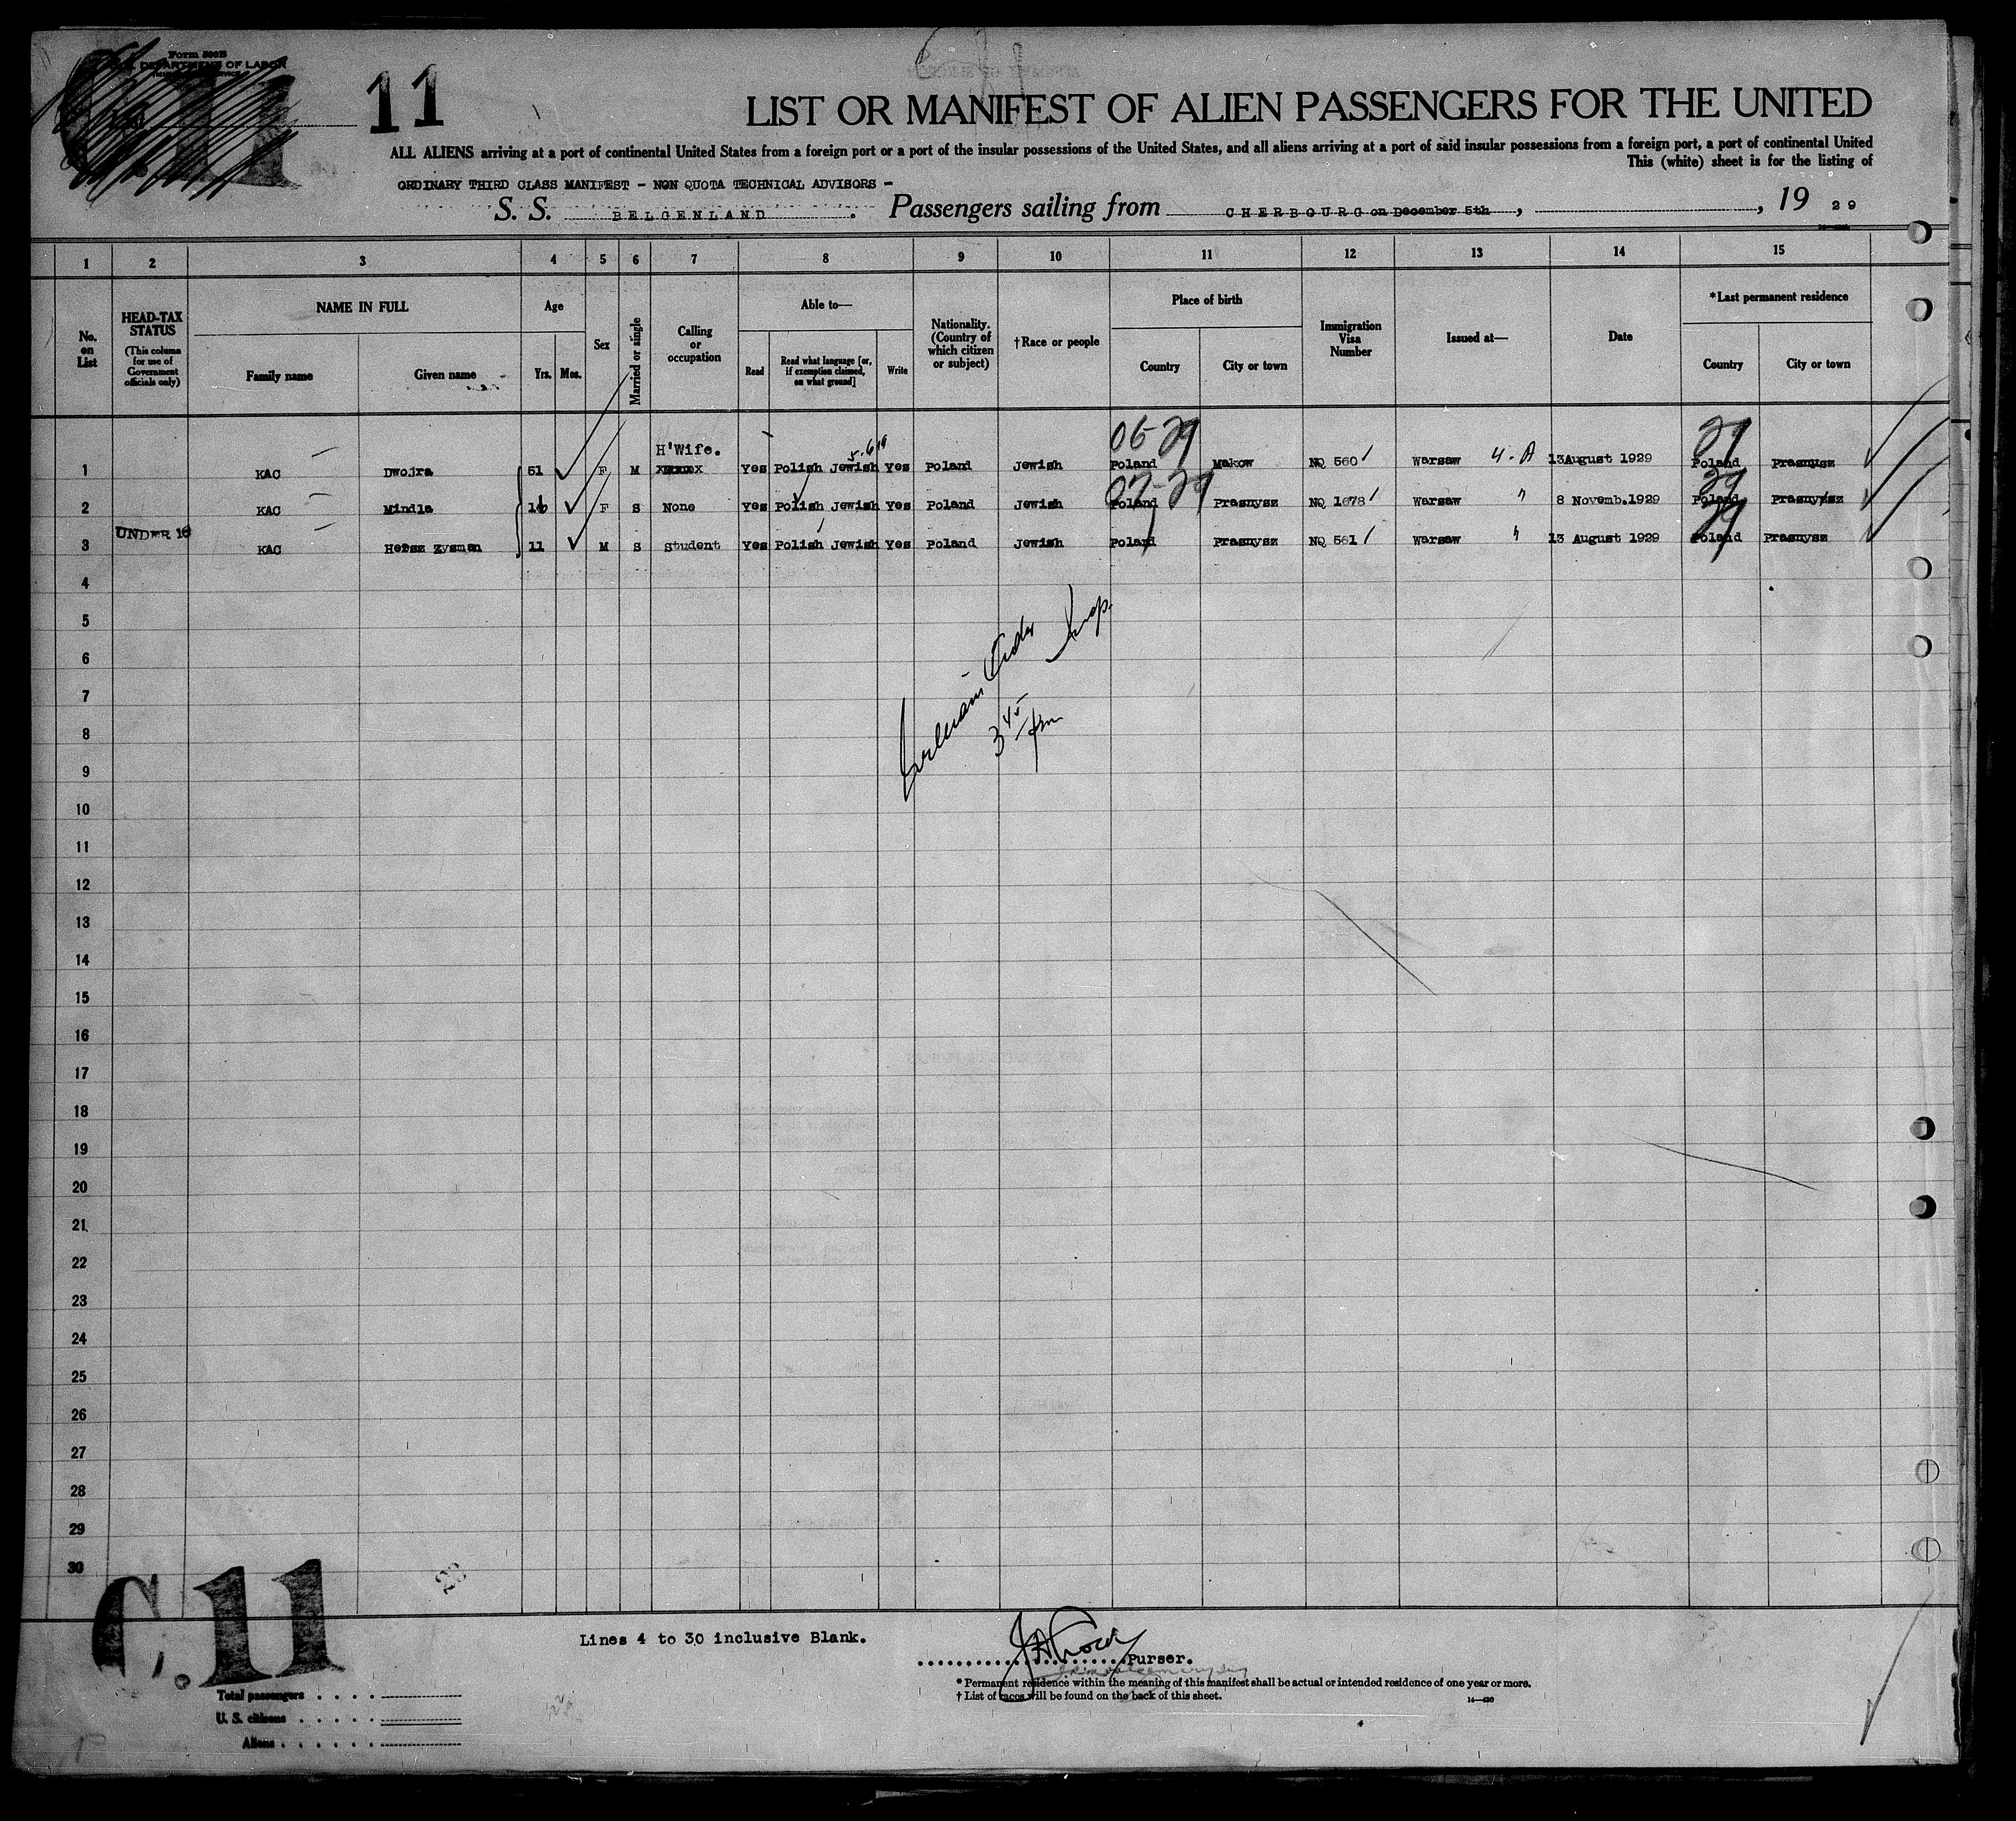 Form 500B
DEPARTMENT OF LABOR
11
LIST OR MANIFEST OF ALIEN PASSENGERS FOR THE UNITED
ALL ALIENS arriving at a port of continental United States from a foreign port or a port of the insular possessions of the United States, and all aliens arriving at a port of said insular possessions from a foreign port, a port of continental United
This (white) sheet is for the listing of
ORDINARY THIRD CLASS MANIFEST - NON QUOTA TECHNICAL ADVISORS -
S. S. BELGENLAND. Passengers sailing from CHERBOURG on December 5th, , 19 29
1 2 3 4 5 6 7 8 9 10 11 12 13 14 15
No. on List
HEAD-TAX STATUS (This column for use of Government officials only)
NAME IN FULL Family name Given name
Age Yrs. Mos.
Sex
Married or single
Calling or occupation
Able to— Read Read what language [or, if exemption claimed, on what ground] Write
Nationality. (Country of which citizen or subject)
†Race or people
Place of birth Country City or town
Immigration Visa Number
Issued at—
Date
*Last permanent residence Country City or town
H'Wife.
1 KAC Dwojra 51 F M Yes Polish Jewish Yes Poland Jewish Poland Makow NQ 560 Warsaw 4-A 13August 1929 Poland Prasnysz
2 KAC Mindla 16 F S None Yes Polish Jewish Yes Poland Jewish Poland Prasnysz NQ 1678 Warsaw " 8 Novemb.1929 Poland Prasnysz
UNDER 16
3 KAC Hersz Zysman 11 M S student Yes Polish Jewish Yes Poland Jewish Poland Prasnysz NQ 561 Warsaw " 13 August 1929 Poland Prasnysz
4
5
6
7
8
9
10
11
12
13
14
15
16
17
18
19
20
21
22
23
24
25
26
27
28
29
30
3 45 pm
C.11
Lines 4 to 30 inclusive Blank.
Purser.
* Permanent residence within the meaning of this manifest shall be actual or intended residence of one year or more.
† List of races will be found on the back of this sheet.
14—430
Total passengers
U. S. citizens
Aliens